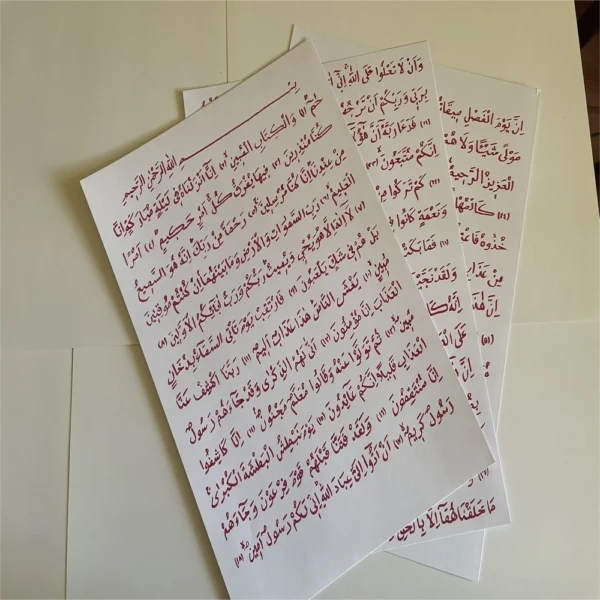 بِسْمِ اللهِ الرَّحْمٰنِ الرَّحِيمِ
حٰمٓ (١) وَالْكِتَابِ الْمُبِينِ (٢) إِنَّا أَنْزَلْنَاهُ فِي لَيْلَةٍ مُبَارَكَةٍ إِنَّا
كُنَّا مُنْذِرِينَ (٣) فِيهَا يُفْرَقُ كُلُّ أَمْرٍ حَكِيمٍ (٤) أَمْرًا
مِنْ عِنْدِنَا إِنَّا كُنَّا مُرْسِلِينَ (٥) رَحْمَةً مِنْ رَبِّكَ إِنَّهُ هُوَ السَّمِيعُ
الْعَلِيمُ (٦) رَبِّ السَّمٰوَاتِ وَالْأَرْضِ وَمَا بَيْنَهُمَا إِنْ كُنْتُمْ مُوقِنِينَ
(٧) لَا إِلٰهَ إِلَّا هُوَ يُحْيِي وَيُمِيتُ رَبُّكُمْ وَرَبُّ آبَائِكُمُ الْأَوَّلِينَ (٨)
بَلْ هُمْ فِي شَكٍّ يَلْعَبُونَ (٩) فَارْتَقِبْ يَوْمَ تَأْتِي السَّمَاءُ بِدُخَانٍ
مُبِينٍ (١٠) يَغْشَى النَّاسَ هٰذَا عَذَابٌ أَلِيمٌ (١١) رَبَّنَا اكْشِفْ عَنَّا
الْعَذَابَ إِنَّا مُؤْمِنُونَ (١٢) أَنَّى لَهُمُ الذِّكْرَى وَقَدْ جَاءَهُمْ رَسُولٌ
مُبِينٌ (١٣) ثُمَّ تَوَلَّوْا عَنْهُ وَقَالُوا مُعَلَّمٌ مَجْنُونٌ (١٤) إِنَّا كَاشِفُوا
الْعَذَابِ قَلِيلًا إِنَّكُمْ عَائِدُونَ (١٥) يَوْمَ نَبْطِشُ الْبَطْشَةَ الْكُبْرَى
إِنَّا مُنْتَقِمُونَ (١٦) وَلَقَدْ فَتَنَّا قَبْلَهُمْ قَوْمَ فِرْعَوْنَ وَجَاءَهُمْ
رَسُولٌ كَرِيمٌ (١٧) أَنْ أَدُّوا إِلَيَّ عِبَادَ اللهِ إِنِّي لَكُمْ رَسُولٌ أَمِينٌ (١٨)
وَأَنْ لَا تَعْلُوا عَلَى اللهِ إِنِّي
بِرَبِّي وَرَبِّكُمْ أَنْ تَرْجُمُونِ
(٢١) فَدَعَا رَبَّهُ أَنَّ هٰؤُلَاءِ
إِنَّكُمْ مُتَّبَعُونَ (٢٣)
كَمْ تَرَكُوا مِنْ
وَنَعْمَةٍ كَانُوا
فَمَا بَكَتْ
وَلَقَدْ نَجَّيْنَا
إِنَّهُ كَانَ
عَلَى
إِنَّ يَوْمَ الْفَصْلِ مِيقَاتُهُمْ
مَوْلًى شَيْئًا وَلَا هُمْ
الْعَزِيزُ الرَّحِيمُ
كَالْمُهْلِ
خُذُوهُ فَاعْتِلُوهُ
مِنْ عَذَابِ
إِنَّ هٰذَا
مَا خَلَقْنَاهُمَا إِلَّا بِالْحَقِّ